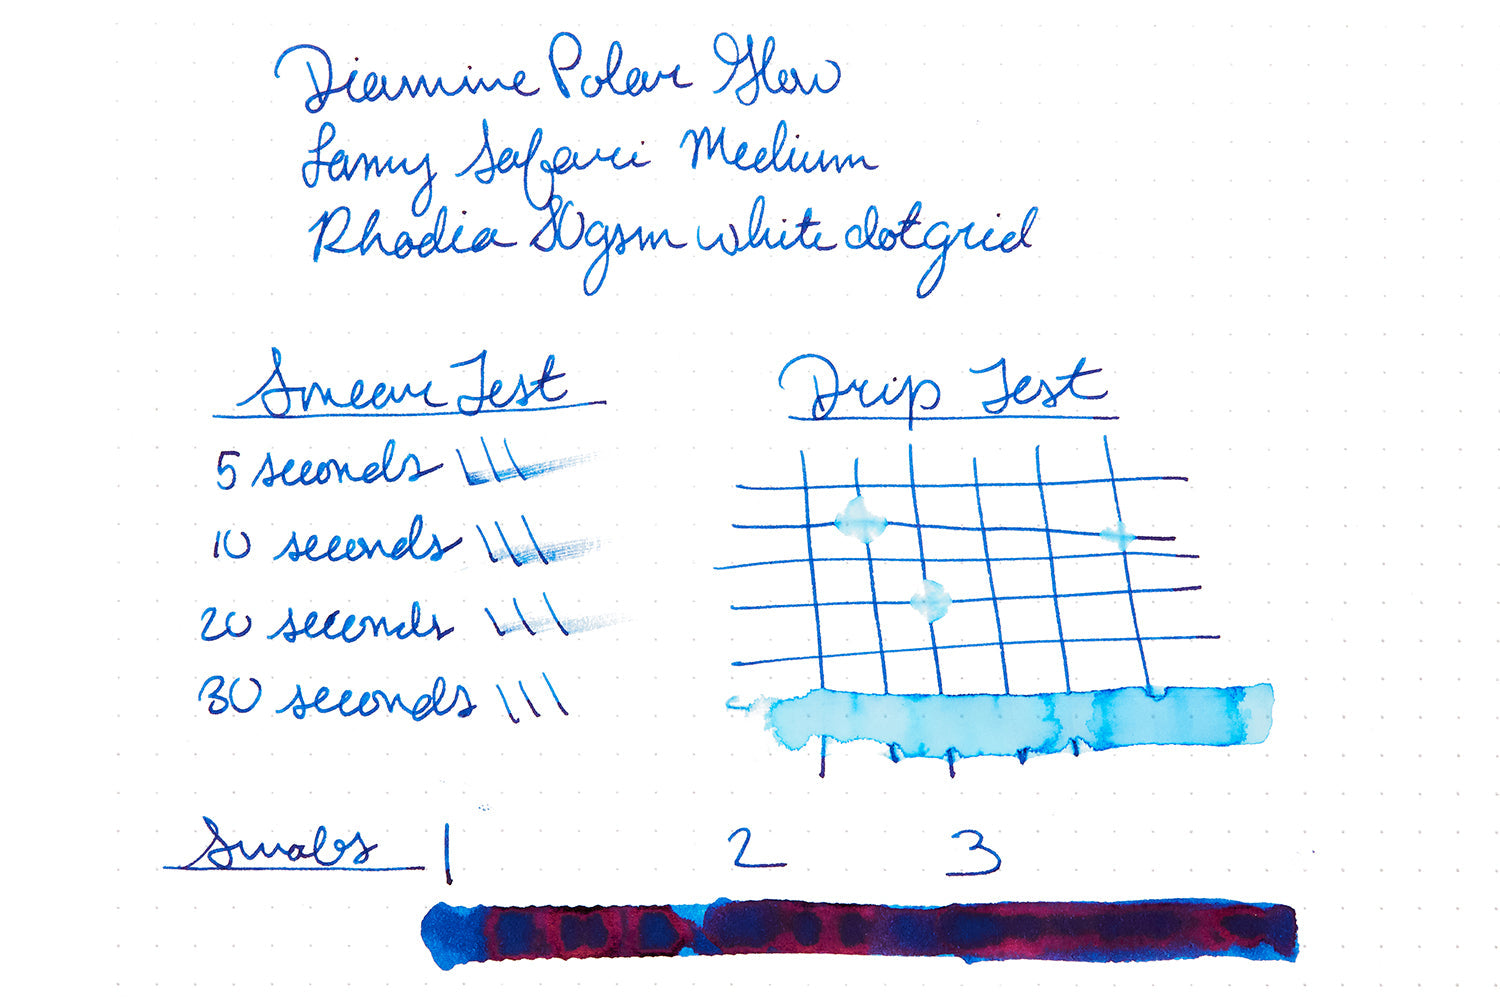 Diamine Polar Glow
Lamy Safari Medium
Rhodia 80gsm white dot grid
Smear Test
5 seconds
10 seconds
20 seconds
30 seconds
Drip Test
Swabs 1 2 3